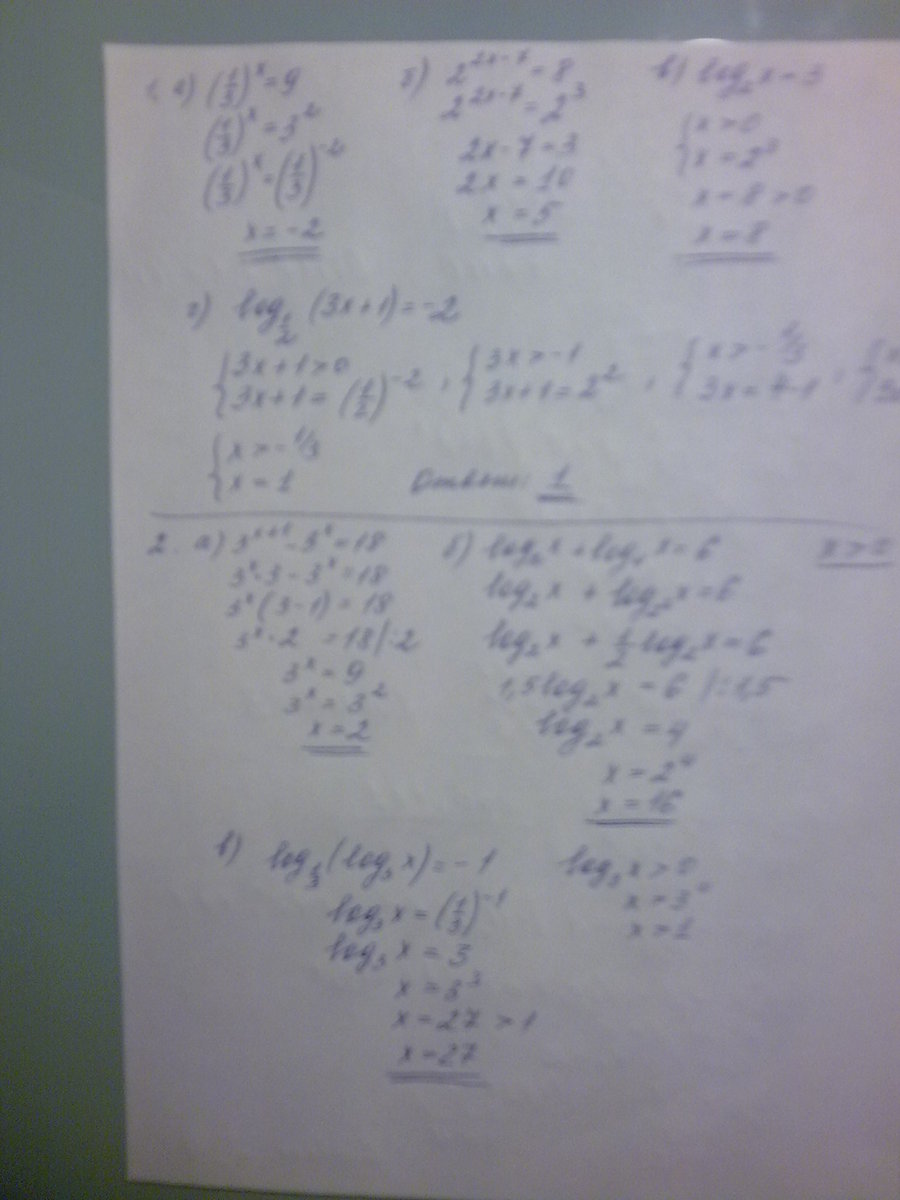 1 а) (1/3)^x = 9
(1/3)^x = 3^2
(1/3)^x = (1/3)^-2
x = -2
б) 2^2x-7 = 8
2^2x-7 = 2^3
2x - 7 = 3
2x = 10
x = 5
в) log_2 x = 3
{ x > 0
{ x = 2^3
x = 8 > 0
x = 8
г) log_1/2 (3x+1) = -2
{ 3x+1 > 0
{ 3x+1 = (1/2)^-2 ;
{ 3x > -1
{ 3x+1 = 2^2 ;
{ x > -1/3
{ 3x = 4-1 ;
{ x > -1/3
{ x = 1
Ответ: 1
2. а) 3^x+1 - 3^x = 18
3^x·3 - 3^x = 18
3^x (3-1) = 18
3^x · 2 = 18 |:2
3^x = 9
3^x = 3^2
x = 2
б) log_2 x + log_4 x = 6
x > 0
log_2 x + log_2^2 x = 6
log_2 x + 1/2 log_2 x = 6
1,5 log_2 x = 6 |:1,5
log_2 x = 4
x = 2^4
x = 16
в) log_1/3 (log_3 x) = -1
log_3 x = (1/3)^-1
log_3 x = 3
x = 3^3
x = 27 > 1
x = 27
log_3 x > 0
x > 3^0
x > 1